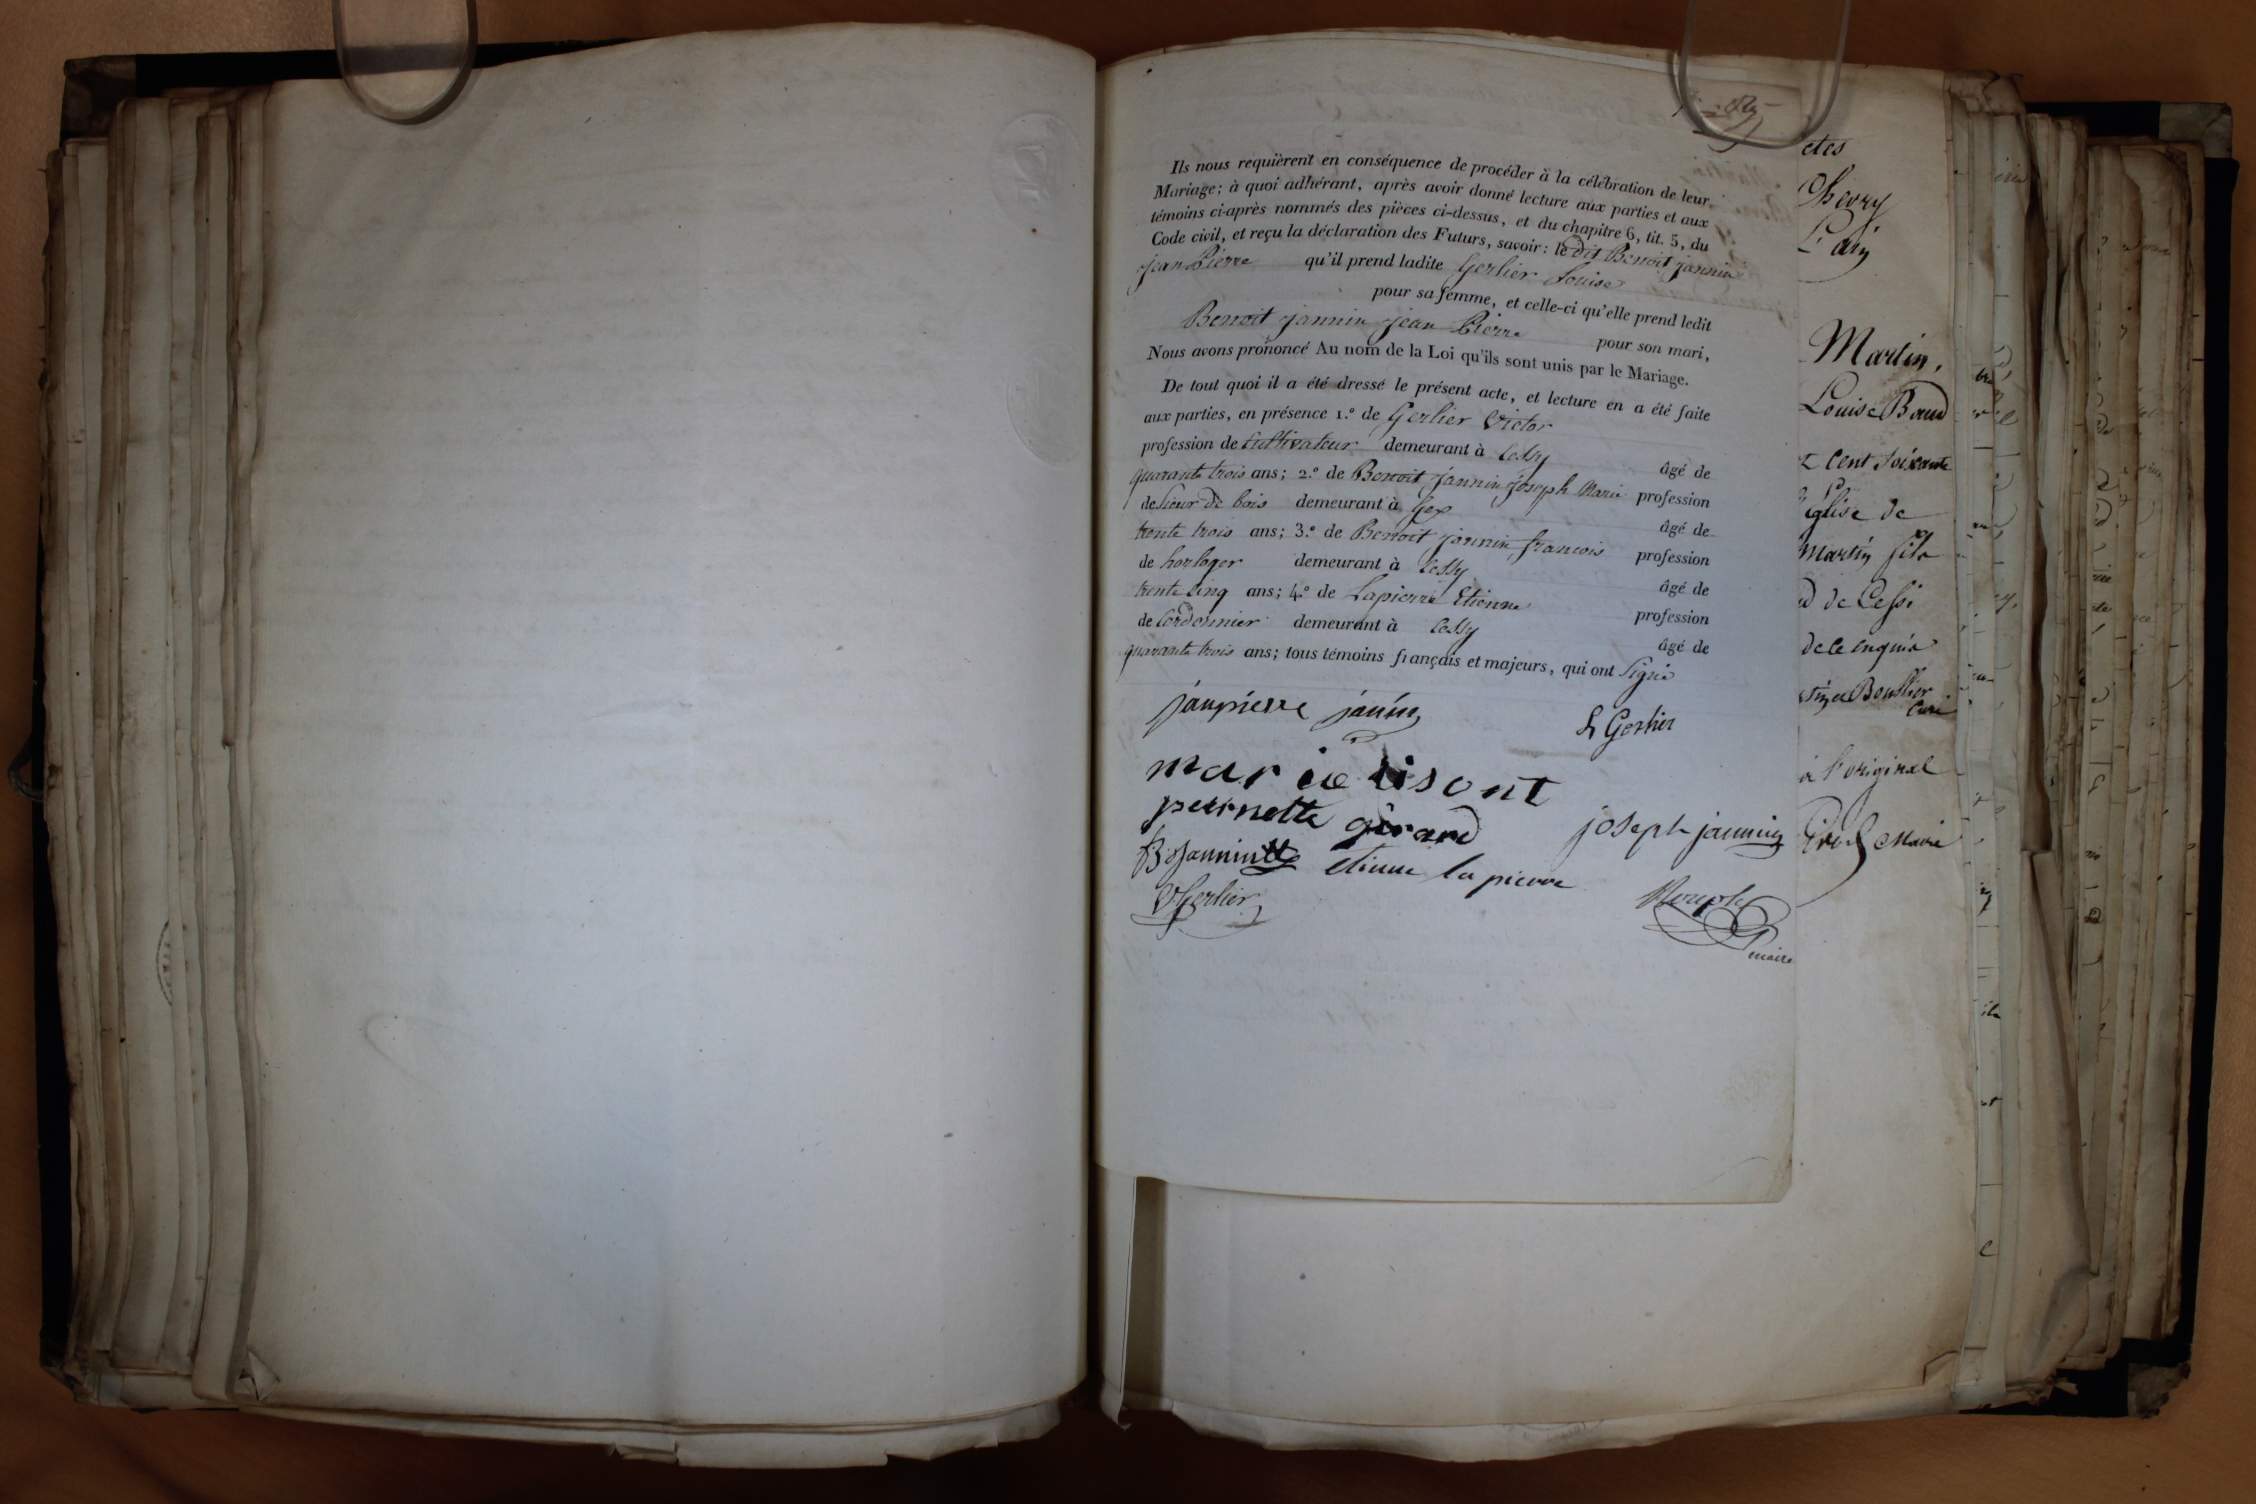 Ils nous requièrent en conséquence de procéder à la célébration de leur
Mariage; à quoi adhérant, après avoir donné lecture aux parties et aux
témoins ci-après nommés des pièces ci-dessus, et du chapitre 6, tit. 5, du
Code civil, et reçu la déclaration des Futurs, savoir: le dit Benoit jannin
jean Pierre qu'il prend ladite Gerlier Louise
pour sa femme, et celle-ci qu'elle prend ledit
Benoit jannin jean Pierre pour son mari,
Nous avons prononcé Au nom de la Loi qu'ils sont unis par le Mariage.
De tout quoi il a été dressé le présent acte, et lecture en a été faite
aux parties, en présence 1.º de Gerlier Victor
profession de Cultivateur demeurant à Cessy âgé de
quarante trois ans; 2.º de Benoit jannin joseph Marie profession
de Sieur de bois demeurant à Gex âgé de
trente trois ans; 3.º de Benoit jannin, francois profession
de horloger demeurant à Cessy âgé de
trente cinq ans; 4.º de Lapierre Etienne profession
de Cordonnier demeurant à Cessy âgé de
quarante trois ans; tous témoins français et majeurs, qui ont Signé
janpierre janin L Gerlier
marie lisont
pernette girard joseph jannin
B Jannin etienne la pierre
VGerlier
maire
ctes
Chevry
L'ain
Martin,
Louise Baud
cent soixante
église de
Martin fils
de Cessi
de ce enquis
Curé
à l'original
Maire